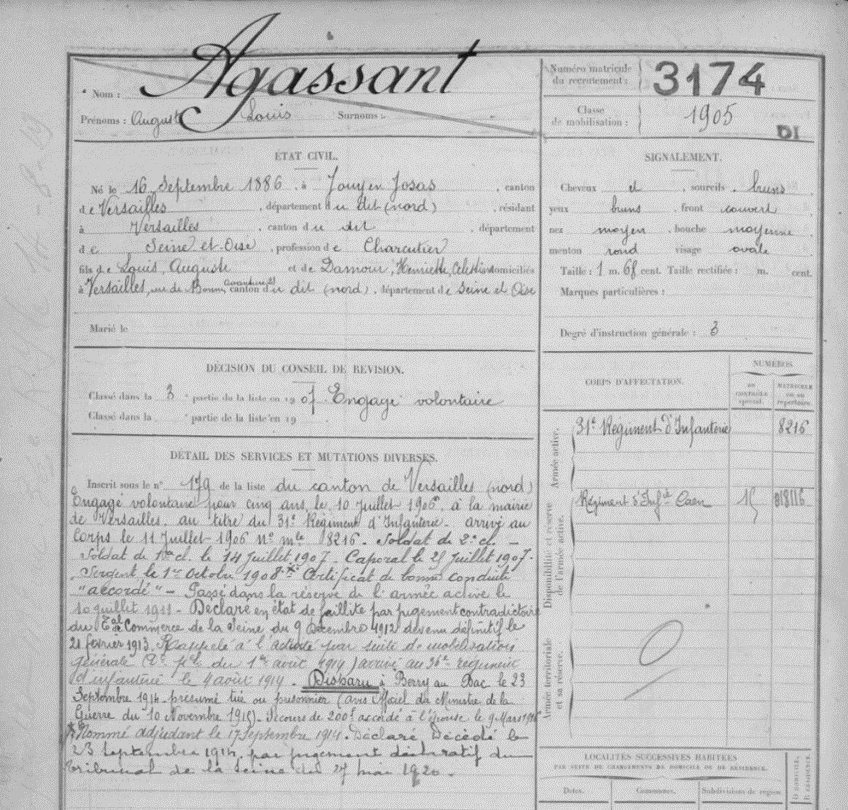 Agassant
Nom :
Prénoms : Auguste Louis Surnoms :
Numéro matricule du recrutement : 3174
Classe de mobilisation : 1905
DI
ÉTAT CIVIL.
Né le 16 Septembre 1886, à Jouy en Josas, canton
de Versailles, département du dit (nord), résidant
à Versailles, canton du dit, département
de Seine-et-Oise, profession de Charcutier
fils de Louis, Auguste et de Damoir, Henriette, Celestine domiciliés
à Versailles, rue de canton du dit (nord), département de Seine et Oise
Marié le
SIGNALEMENT.
Cheveux et sourcils bruns
yeux bruns, front couvert
nez moyen, bouche moyenne
menton rond visage ovale
Taille : 1 m. 68 cent. Taille rectifiée : m. cent.
Marques particulières :
Degré d'instruction générale : 3
DÉCISION DU CONSEIL DE REVISION.
Classé dans la 3e partie de la liste en 1907 Engagé volontaire
Classé dans la partie de la liste en 19
CORPS D'AFFECTATION.
NUMÉROS
AU CONTRÔLE spécial.
MATRICULE ou au répertoire.
Armée active.
31e Régiment d'Infanterie 8216
Disponibilité et réserve de l'armée active.
Régiment d'Infie Caen 15 18116
Armée territoriale et sa réserve.
DÉTAIL DES SERVICES ET MUTATIONS DIVERSES.
Inscrit sous le n° 179 de la liste du canton de Versailles (nord)
Engagé volontaire pour cinq ans, le 10 Juillet 1906, à la mairie
de Versailles, au titre du 31e Régiment d'Infanterie. arrivé au
corps le 11 Juillet 1906 n° mle 8216. Soldat de 2e cl. –
Soldat de 1re cl. le 14 Juillet 1907. Caporal le 25 Juillet 1907.
Sergent le 1er Octobre 1908. Certificat de bonne conduite
"accordé" – Passé dans la réserve de l'armée active le
10 juillet 1911 – Déclaré en état de faillite par jugement contradictoire
du Tal de Commerce de la Seine du 9 Décembre 1912 devenu définitif le
21 février 1913. Rappelé à l'activité par suite de mobilisation
générale (Dt pel du 1er août 1914) arrivé au 36e régiment
d'infanterie le 9 août 1914. Disparu à Berry au Bac le 23
Septembre 1914 présumé tué ou prisonnier (avis officiel du Ministre de la
Guerre du 10 Novembre 1915). Secours de 200f accordé à l'épouse le 9 Mars 1916
Nommé adjudant le 17 Septembre 1914. Déclaré Décédé le
23 septembre 1914, par jugement déclaratif du
tribunal de la Seine du 27 mai 1920.
LOCALITÉS SUCCESSIVES HABITÉES
PAR SUITE DE CHANGEMENTS DE DOMICILE OU DE RÉSIDENCE.
Dates. Communes. Subdivisions de région
D domicile, R résidence.